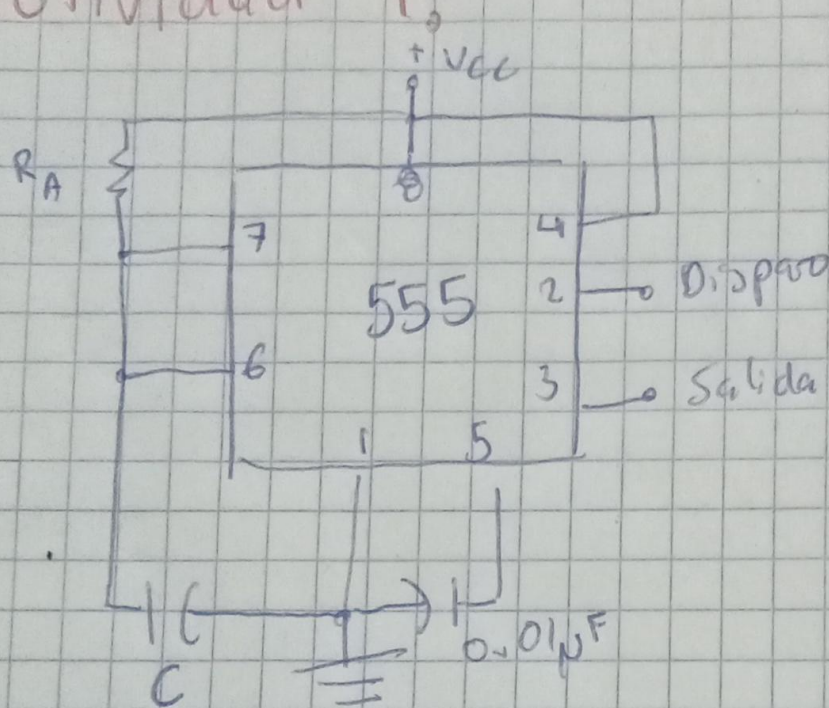 + Vcc
RA
8
7
4
555
2
Disparo
6
3
Salida
1
5
0.01µF
C